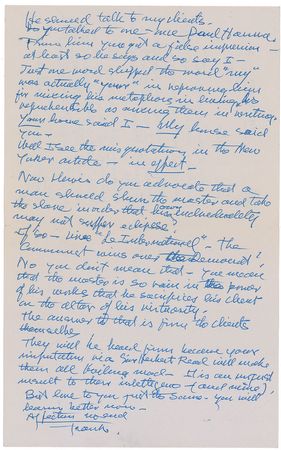 He seemed talk to my clients.
So you talked to one - nice Paul Hanna.
From him you got a false impression -
at least so he says and so say I -
Just one word slipped the word "my"
was actually "your" in reproving him
for mixing his metaphors in
reprehensible as mixing them in writing.
Your house said I - My house said
you -
Well I see the misquotation in the New
Yorker article - in effect -
Now Lewis do you advocate that a
man should shun the master and take
the slave in order that his individuality
may not suffer eclipse?
If so - "Le International" - the
Communist wins over the Democrat!
No you don't mean that - you mean
that the master is so vain in the power
of his works that he sacrifices his client
on the altar of his virtuosity.
The answer to that is from the clients
themselves
They will be heard from because your
imputation via Sir Herbert Read will make
them all boiling mad - It is an unjust
insult to their intelligence - (and mine)
But love to you just the same - you will
learn better now -
Affection no end
Frank